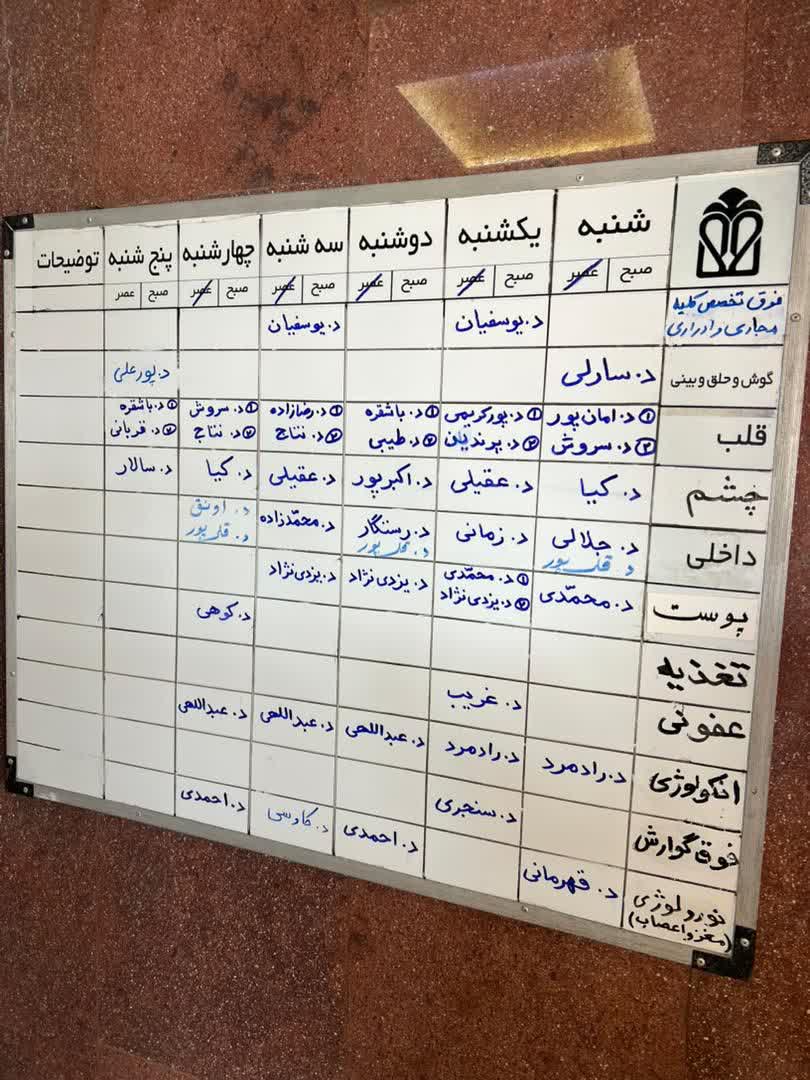 شنبه یکشنبه دوشنبه سه شنبه چهارشنبه پنج شنبه توضیحات
صبح عصر صبح عصر صبح عصر صبح عصر صبح عصر صبح عصر
فوق تخصص کلیه د. یوسفیان د. یوسفیان
مجاری و ادراری
گوش و حلق و بینی د. سارلی د. پورعلی
قلب ① د. امان پور ① د. پورکریمی ① د. باشقره ① د. رضازاده ① د. سروش ① د. باشقره
② د. سروش ② د. پرندیان ② د. طیبی ② د. نتاج ② د. نتاج ② د. قربانی
چشم د. کیا د. عقیلی د. اکبرپور د. عقیلی د. کیا د. سالار
داخلی د. جلالی د. زمانی د. رستگار د. محمدزاده د. اونق
د قلی پور د. قلی پور د. قلی پور
پوست د. محمّدی ① د. محمّدی د. یزدی نژاد د. یزدی نژاد
② د. یزدی نژاد
تغذیه د. کوهی
عفونی د. غریب
انکولوژی د. رادمرد د. رادمرد د. عبداللهی د. عبداللهی د. عبداللهی
فوق گوارش د. سنجری
نورولوژی د. قهرمانی د. احمدی د. کاوسی د. احمدی
(مغز و اعصاب)